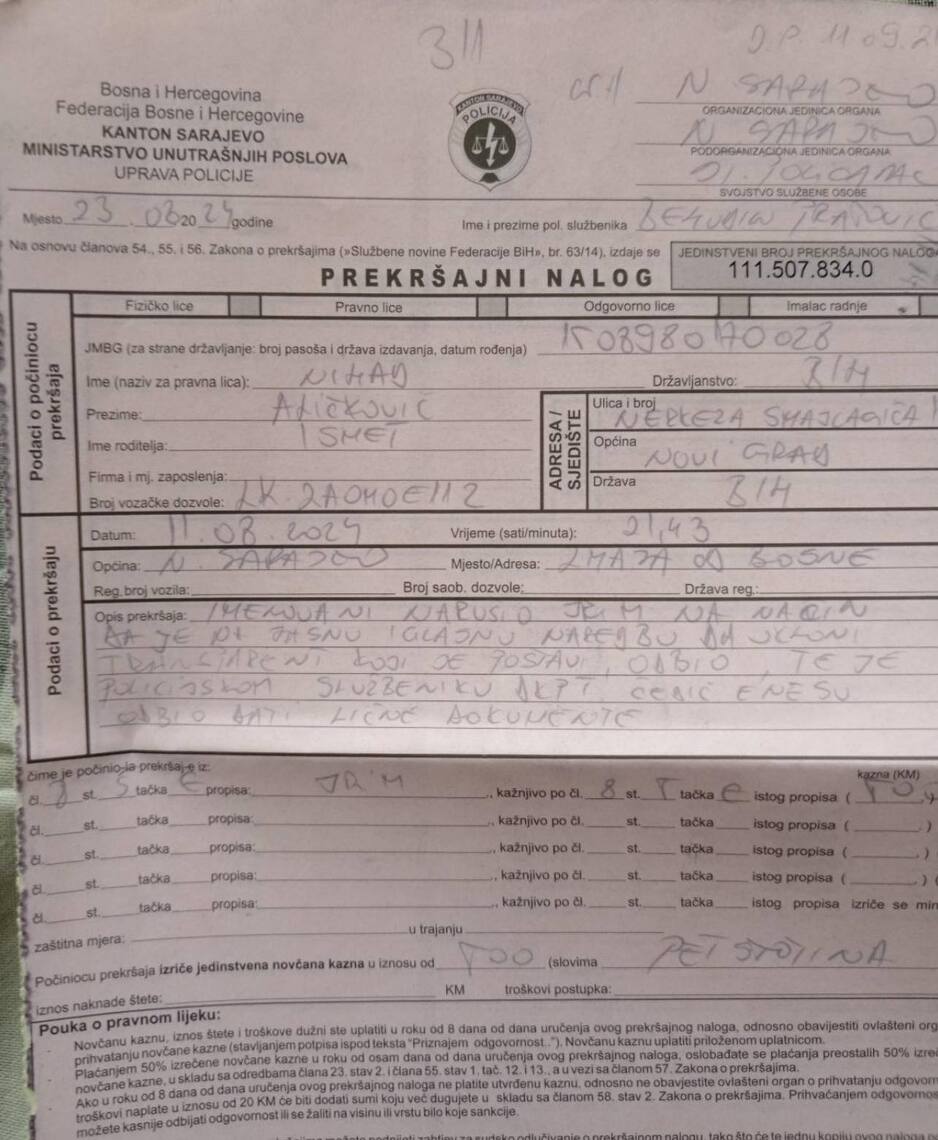 311
J.P. 11 09.2
Bosna i Hercegovina
Federacija Bosne i Hercegovine
KANTON SARAJEVO
MINISTARSTVO UNUTRAŠNJIH POSLOVA
UPRAVA POLICIJE
KANTON SARAJEVO
POLICIJA
N SARAJEVO
ORGANIZACIONA JEDINICA ORGANA
N SARAJEVO
PODORGANIZACIONA JEDINICA ORGANA
ST. POLICAJAC
SVOJSTVO SLUŽBENE OSOBE
Mjesto 23 .08 2024 godine
Ime i prezime pol. službenika
Na osnovu članova 54., 55. i 56. Zakona o prekršajima (»Službene novine Federacije BiH«, br. 63/14), izdaje se
JEDINSTVENI BROJ PREKRŠAJNOG NALOGA
PREKRŠAJNI NALOG
111.507.834.0
Fizičko lice Pravno lice Odgovorno lice Imalac radnje
Podaci o počiniocu prekršaja
JMBG (za strane državljanje: broj pasoša i država izdavanja, datum rođenja)
Ime (naziv za pravna lica): NIHAD Državljanstvo: BIH
Prezime: ALIČKOVIĆ
Ime roditelja: ISMET
Firma i mj. zaposlenja:
Broj vozačke dozvole: LK. 2A0M0E112
ADRESA / SJEDIŠTE
Ulica i broj NERKEZA SMAJLAGIĆA
Općina NOVI GRAD
Država BIH
Podaci o prekršaju
Datum: 11.08.2024 Vrijeme (sati/minuta): 21,43
Općina: N. SARAJEVO Mjesto/Adresa: ZMAJA OD BOSNE
Reg.broj vozila: Broj saob. dozvole: Država reg.:
Opis prekršaja: IMENOVANI NARUŠIO JRIM NA NAČIN
DA JE NA JASNU I GLASNU NAREDBU DA UKLONI
TRANSPARENT KOJI JE POSTAVI, ODBIO, TE JE
POLICIJSKOM SLUŽBENIKU ĆEBIĆ ENESU
ODBIO DATI LIČNE DOKUMENTE
čime je počinio-la prekršaj-e iz:
kazna (KM)
čl. 8 st. 5 tačka E propisa: JRIM , kažnjivo po čl. 8 st. tačka e istog propisa (
čl. st. tačka propisa: , kažnjivo po čl. st. tačka istog propisa ( , )
čl. st. tačka propisa: , kažnjivo po čl. st. tačka istog propisa ( , )
čl. st. tačka propisa: , kažnjivo po čl. st. tačka istog propisa ( , ) (
čl. st. tačka propisa: , kažnjivo po čl. st. tačka istog propisa izriče se min
zaštitna mjera: u trajanju
Počiniocu prekršaja izriče jedinstvena novčana kazna u iznosu od 500 (slovima PETSTOTINA
iznos naknade štete: KM troškovi postupka:
Pouka o pravnom lijeku:
Novčanu kaznu, iznos štete i troškove dužni ste uplatiti u roku od 8 dana od dana uručenja ovog prekršajnog naloga, odnosno obavijestiti ovlašteni org
prihvatanju novčane kazne (stavljanjem potpisa ispod teksta "Priznajem odgovornost.."). Novčanu kaznu uplatiti priloženom uplatnicom.
Plaćanjem 50% izrečene novčane kazne u roku od osam dana od dana uručenja ovog prekršajnog naloga, oslobađate se plaćanja preostalih 50% izreč
novčane kazne, u skladu sa odredbama člana 23. stav 2. i člana 55. stav 1, tač. 12. i 13., a u vezi sa članom 57. Zakona o prekršajima.
Ako u roku od 8 dana od dana uručenja ovog prekršajnog naloga ne platite utvrđenu kaznu, odnosno ne obavjestite ovlašteni organ o prihvatanju odgovorn
troškovi naplate u iznosu od 20 KM će biti dodati sumi koju već dugujete u skladu sa članom 58. stav 2. Zakona o prekršajima. Prihvaćanjem odgovornos
možete kasnije odbijati odgovornost ili se žaliti na visinu ili vrstu bilo koje sankcije.